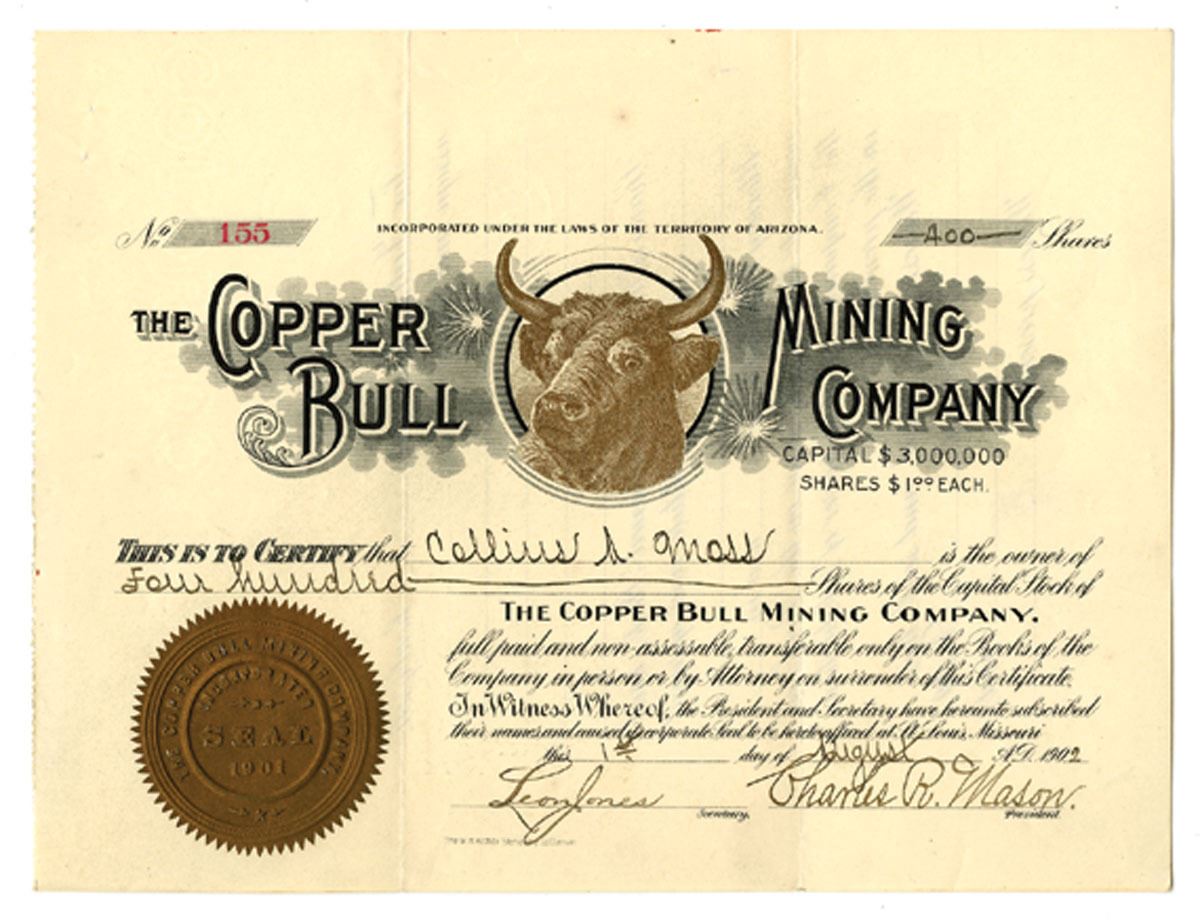 No 155
INCORPORATED UNDER THE LAWS OF THE TERRITORY OF ARIZONA.
400 Shares
THE COPPER BULL
MINING COMPANY
CAPITAL $3,000,000
SHARES $1.00 EACH.
THIS IS TO CERTIFY that Collius A. Moss is the owner of
Four hundred Shares of the Capital Stock of
THE COPPER BULL MINING COMPANY.
full paid and non-assessable, transferable only on the Books of the
Company in person or by Attorney on surrender of this Certificate.
In Witness Whereof, the President and Secretary have hereunto subscribed
their names and caused its corporate Seal to be hereto affixed at St. Louis, Missouri
this 1st day of August A.D. 1902
Leon Jones
Secretary.
Charles R. Mason.
President.
THE COPPER BULL MINING COMPANY.
INCORPORATED
SEAL
1901